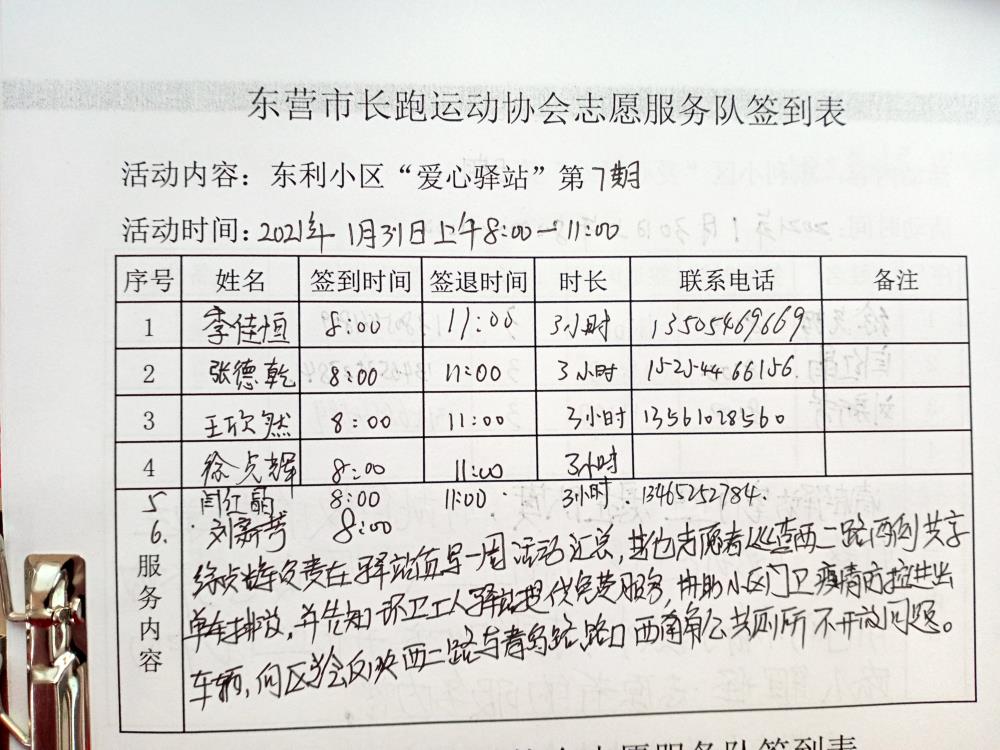 东营市长跑运动协会志愿服务队签到表
活动内容：东利小区“爱心驿站”第7期
活动时间：2021年1月31日上午8:00—11:00
序号 姓名 签到时间 签退时间 时长 联系电话 备注
1 李佳恒 8:00 11:00 3小时 13505469669
2 张德乾 8:00 11:00 3小时 15254466156
3 王欣然 8:00 11:00 3小时 13561028560
4 徐贞辉 8:00 11:00 3小时
5 闫红晶 8:00 11:00 3小时 13465252784
6. 刘新芳 8:00
服务内容
徐贞辉负责在驿站值导一周活动汇总，其他志愿者巡查西二路两侧共享
单车排放，并告知环卫工人驿站提供免费服务，协助小区门卫疫情防控进出
车辆，向区学会反映西二路与青岛路路口西南角公共厕所不开放问题。